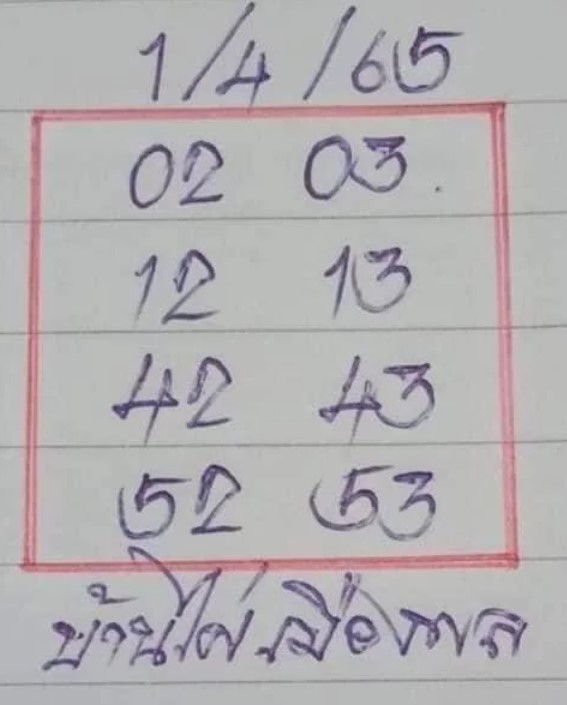 1/4/65
02 03.
12 13
42 43
52 53
บ้านไผ่เมืองพล